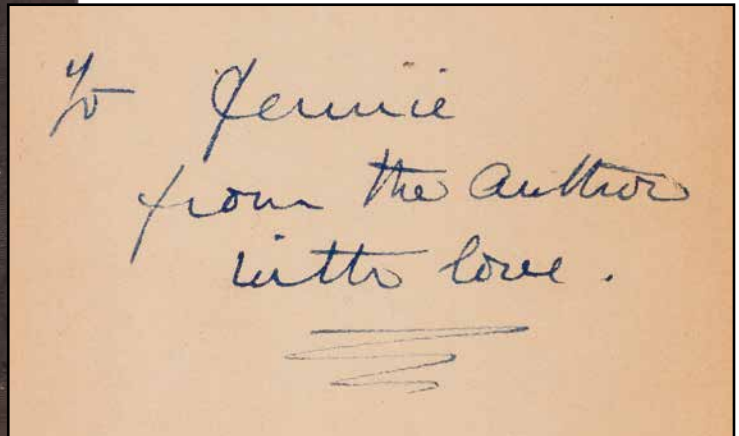 To Jennie
from the Author
with love.